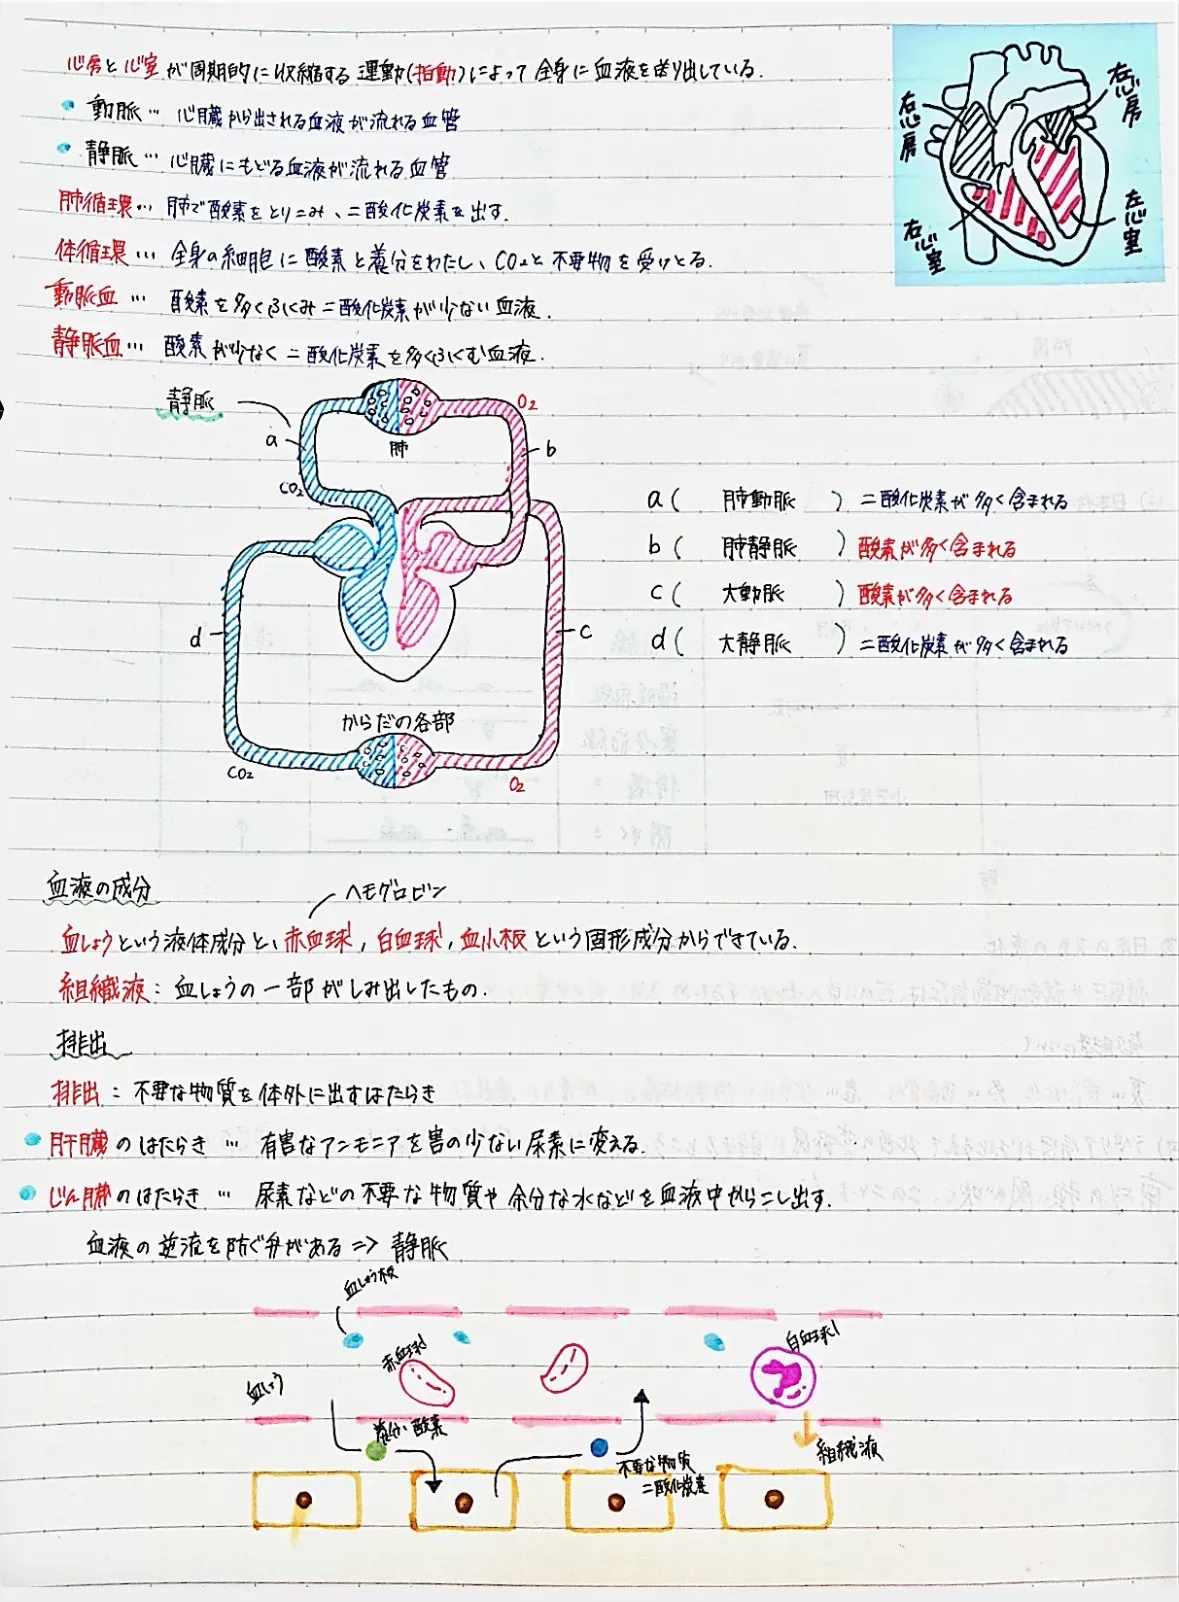 心房と心室が周期的に収縮する運動(拍動)によって全身に血液を送り出している.
動脈… 心臓から出される血液が流れる血管
静脈… 心臓にもどる血液が流れる血管
肺循環… 肺で酸素をとりこみ、二酸化炭素を出す.
体循環… 全身の細胞に酸素と養分をわたし、CO₂と不要物を受けとる.
動脈血… 酸素を多くふくみ二酸化炭素が少ない血液.
静脈血… 酸素が少なく二酸化炭素を多くふくむ血液.
右心房
右心室
左心室
静脈
a
肺
O₂
b
CO₂
d
c
からだの各部
CO₂
O₂
a( 肺動脈 )二酸化炭素が多く含まれる
b( 肺静脈 )酸素が多く含まれる
c( 大動脈 )酸素が多く含まれる
d( 大静脈 )二酸化炭素が多く含まれる
血液の成分
ヘモグロビン
血しょうという液体成分と、赤血球,白血球,血小板という固形成分からできている.
組織液:血しょうの一部がしみ出したもの.
排出
排出:不要な物質を体外に出すはたらき
肝臓のはたらき… 有害なアンモニアを害の少ない尿素に変える.
じん臓のはたらき… 尿素などの不要な物質や余分な水などを血液中からこし出す.
血液の逆流を防ぐ弁がある=>静脈
血しょう板
赤血球
白血球
血しょう
養分・酸素
不要な物質
二酸化炭素
組織液